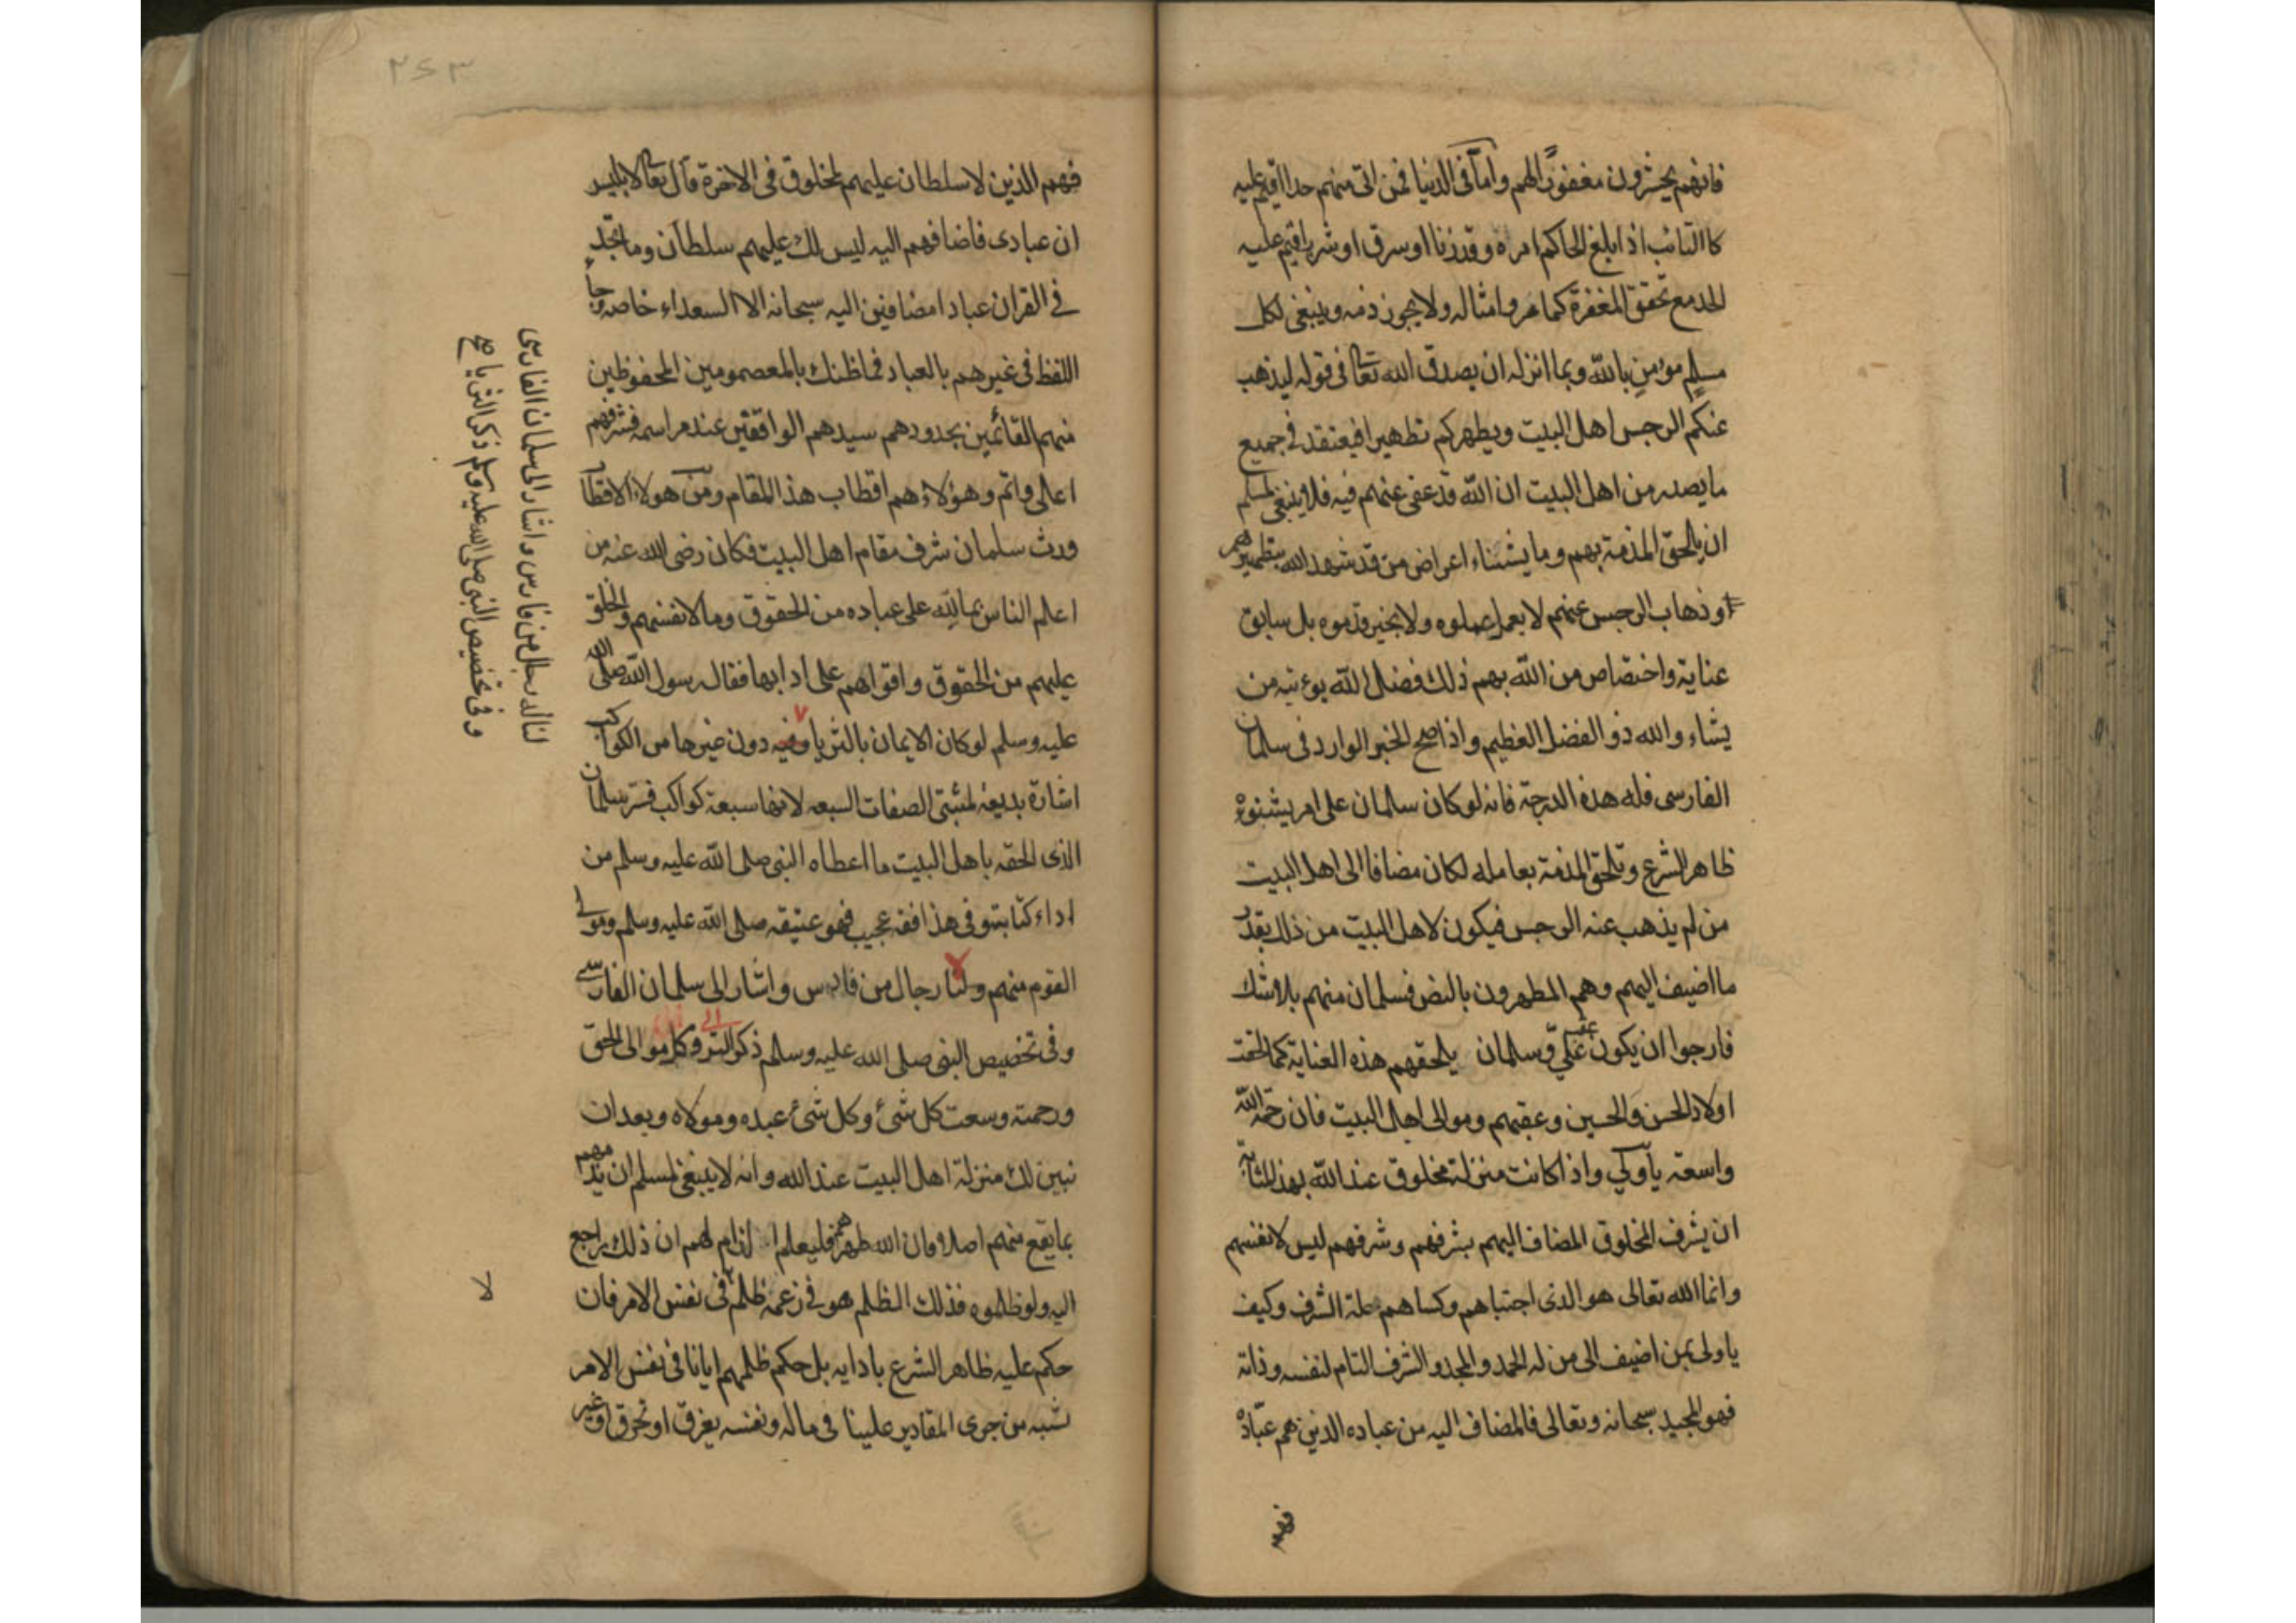 فانهم يحشرون مغفورًا لهم واما في الدنيا فمن اتى منهم حدا اقيم عليه
كالتائب اذا بلغ الحاكم امره وقد زنا او سرق او شرب اقيم عليه
الحد مع تحقق المغفرة كماعر وامثاله ولا يجوز ذمه وينبغي لكل
مسلم مؤمن بالله وبما انزله ان يصدق الله تعالى في قوله ليذهب
عنكم الرجس اهل البيت ويطهركم تطهيرا فيعتقد في جميع
ما يصدر من اهل البيت ان الله قد عفى عنهم فيه فلا ينبغي لمسلم
ان يلحق المذمة بهم وما يشناء اعراض من قد شهد الله بتطهيرهم
وذهاب الرجس عنهم لا بعمل عملوه ولا بخير قدموه بل سابق
عناية واختصاص من الله بهم ذلك فضل الله يوءتيه من
يشاء والله ذو الفضل العظيم واذا صح الخبر الوارد في سلمان
الفارسى فله هذه الدرجة فانه لو كان سلمان على امر يشنوءه
ظاهر الشرع وتلحق المذمة بعامله لكان مضافا الى اهل البيت
من لم يذهب عنه الرجس فيكون لاهل البيت من ذلك بقدر
ما اضيف اليهم وهم المطهرون بالنص فسلمان منهم بلا شك
فارجوا ان يكون عقب علي وسلمان يلحقهم هذه العناية كما لحقت
اولاد الحسن والحسين وعقبهم وموالى اهل البيت فان رحمة الله
واسعة يا ولي واذا كانت منزلة مخلوق عند الله بهذه المثابة
ان يشرف المخلوق المضاف اليهم بشرفهم وشرفهم ليس لانفسهم
وانما الله تعالى هو الذى اجتباهم وكساهم حلة الشرف وكيف
يا ولى بمن اضيف الى من له الحمد والمجد والشرف التام لنفسه وذاته
فهو المجيد سبحانه وتعالى فالمضاف اليه من عباده الذين هم عباده
فهم
٢٤٣
فهم الذين لا سلطان عليهم لمخلوق في الاخرة قال تعالى لابليس
ان عبادى فاضافهم اليه ليس لك عليهم سلطان وما تجد
في القران عبادا مضافين اليه سبحانه الا السعداء خاصة وجاء
اللفظ في غيرهم بالعباد فما ظنك بالمعصومين المحفوظين
منهم القائمين بحدودهم سيدهم الواقفين عند مراسمه فشرفهم
اعلى واتم وهؤلاء هم اقطاب هذا المقام ومن هولاء الاقطاب
ورث سلمان شرف مقام اهل البيت فكان رضى الله عنه من
اعلم الناس بما لله على عباده من الحقوق وما لانفسهم والخلق
عليهم من الحقوق واقواهم على ادابها فقال رسول الله صلى الله
عليه وسلم لو كان الايمان بالثريا وفيه دون غيرها من الكواكب
اشارة بديعة لمثبتى الصفات السبعه لانها سبعة كواكب فسر سلمان
الذى الحقه باهل البيت ما اعطاه النبى صلى الله عليه وسلم من
اداء كتابته وفى هذا فقه عجيب فهو عتيقه صلى الله عليه وسلم ومولى
القوم منهم و لنا رجال من فارس واشار الى سلمان الفارسى
وفى تخصيص النبى صلى الله عليه وسلم ذكر الثر وكل موالى الحق
ورحمته وسعت كل شئ وكل شئ عبده ومولاه وبعد ان
نبين لك منزلة اهل البيت عند الله وانه لا ينبغي لمسلم ان يذمهم
بما يقع منهم اصلا فان الله طهرهم فليعلم الذام لهم ان ذلك يراجع
اليه ولو ظلموه فذلك الظلم هو في زعمه ظلم لا فى نفس الامر فان
حكم عليه ظاهر الشرع بادايه بل حكم ظلمهم ايانا في نفس الامر
شبه من جرى المقادير علينا فى ماله ونفسه بغرق او تحرق او غير
لناله رجال من فارس واشار الى سلمان الفارسى
وفى تخصيص النبى صلى الله عليه وسلم ذكر الثريا صح